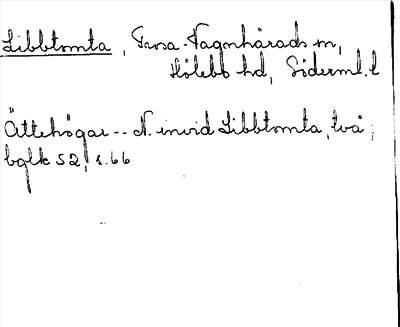 Libbtomta, Trosa-Vagnhärads sn,
Hölebo hd, Söderml. l
Ättehögar -- N. invid Libbtomta, två;
bglk 52, s. 66